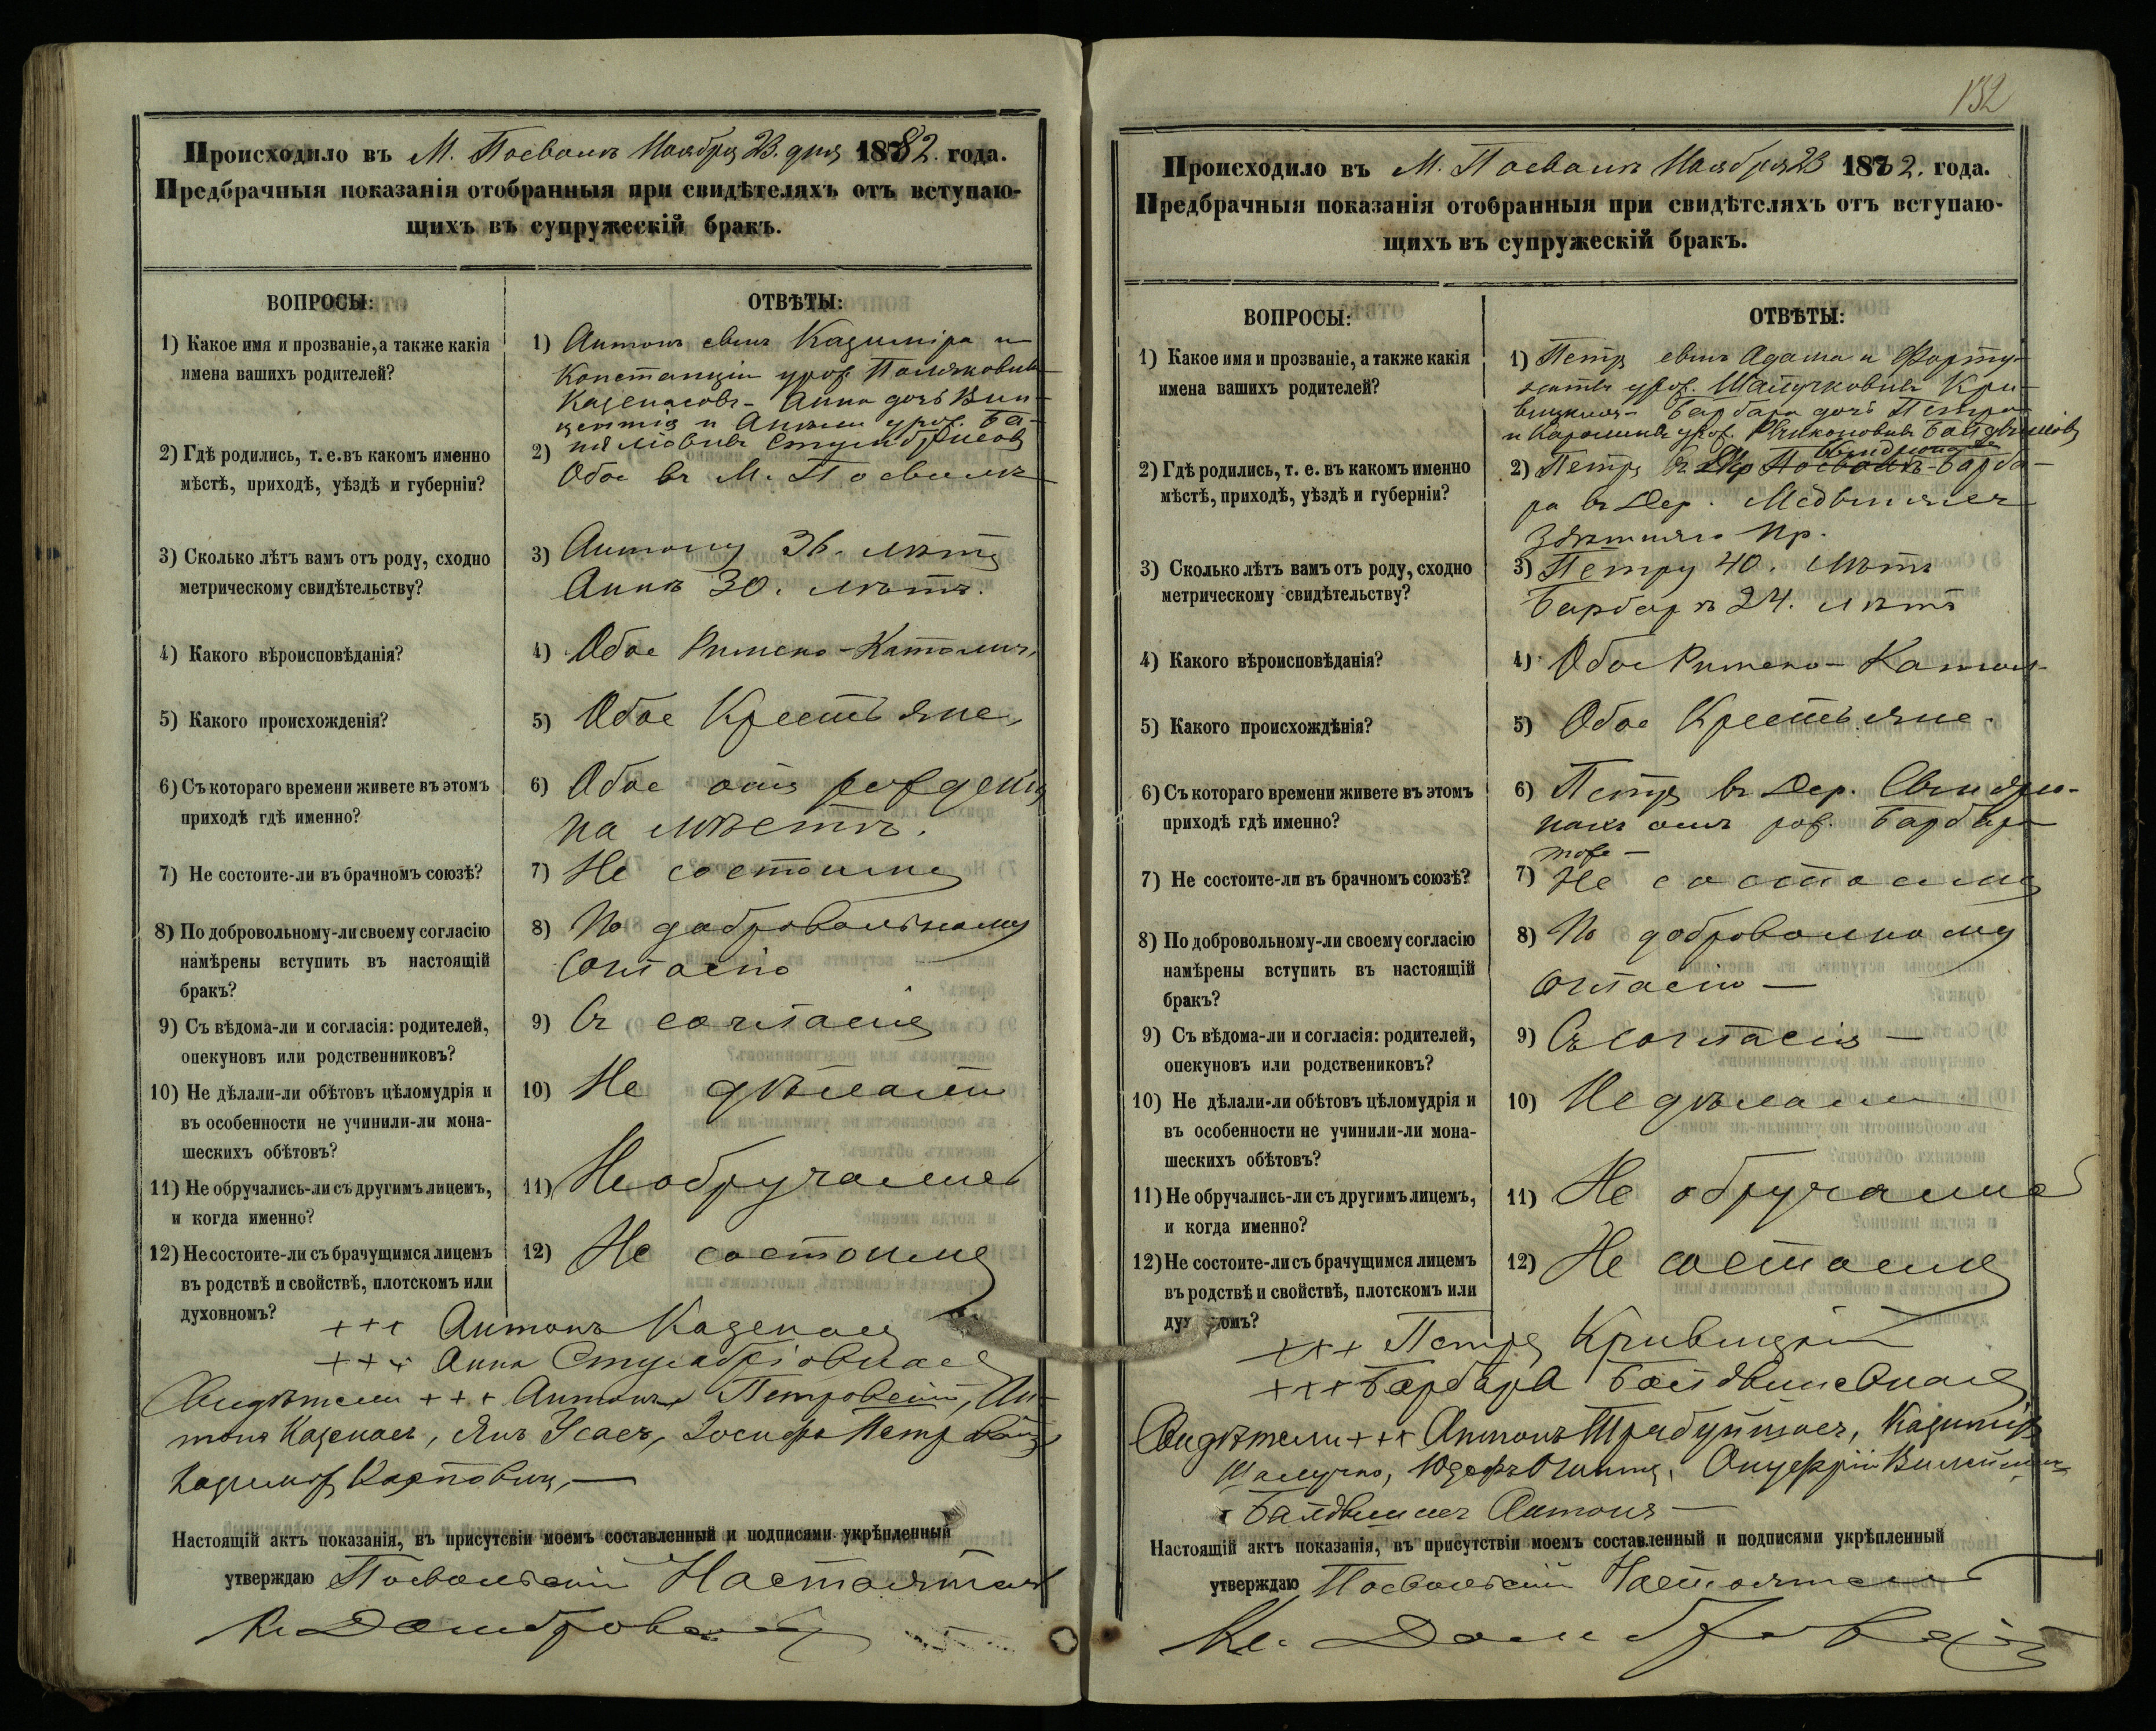 Происходило въ М. Посволѣ Ноября 23. дня 1882. года.
Предбрачныя показанія отобранныя при свидѣтеляхъ отъ вступаю-
щихъ въ супружескій бракъ.
ВОПРОСЫ:
ОТВѢТЫ:
1) Какое имя и прозваніе, а также какія
имена вашихъ родителей?
1) Антонъ сынъ Казимира и
Констанціи урож.
Анна дочь Вин-
центія и урож. Ба-
2) Гдѣ родились, т. е. въ какомъ именно
мѣстѣ, приходѣ, уѣздѣ и губерніи?
2)
Обое въ М. Посволѣ
3) Сколько лѣтъ вамъ отъ роду, сходно
метрическому свидѣтельству?
3) Антону 36. лѣтъ
Аннѣ 30. лѣтъ.
4) Какого вѣроисповѣданія?
4) Обое Римско-Католич.
5) Какого происхожденія?
5) Обое Крестьяне,
6) Съ котораго времени живете въ этомъ
приходѣ гдѣ именно?
6) Обое отъ рожденія
на мѣстѣ.
7) Не состоите-ли въ брачномъ союзѣ?
7) Не состоимъ
8) По добровольному-ли своему согласію
намѣрены вступить въ настоящій
бракъ?
8) По добровольному
согласію
9) Съ вѣдома-ли и согласія: родителей,
опекуновъ или родственниковъ?
9) Съ согласія
10) Не дѣлали-ли обѣтовъ цѣломудрія и
въ особенности не учинили-ли мона-
шескихъ обѣтовъ?
10) Не дѣлали
11) Не обручались-ли съ другимъ лицемъ,
и когда именно?
11) Не обручались
12) Не состоите-ли съ брачущимся лицемъ
въ родствѣ и свойствѣ, плотскомъ или
духовномъ?
12) Не состоимъ
+++ Антонъ Казенасъ
+++ Анна
Свидѣтели +++ Антонъ Петровскій, Ан-
тонъ Казенасъ, Янъ Усасъ, Іосифъ
Казимиръ Карповичъ,—
Настоящій актъ показанія, въ присутсвіи моемъ составленный и подписями укрѣпленный
утверждаю Посвольскій Настоятель
Кс. Домбровскій
132
Происходило въ М. Посволѣ Ноября 23 1882. года.
Предбрачныя показанія отобранныя при свидѣтеляхъ отъ вступаю-
щихъ въ супружескій бракъ.
ВОПРОСЫ:
ОТВѢТЫ:
1) Какое имя и прозваніе, а также какія
имена вашихъ родителей?
1) Петръ сынъ Адама и Форту-
наты урож. Кри-
вицкихъ — Барбара дочь Петра
и Каролины урож.
2) Гдѣ родились, т. е. въ какомъ именно
мѣстѣ, приходѣ, уѣздѣ и губерніи?
2) Петръ въ Барба-
ра въ Дер.
здѣшняго пр.
3) Сколько лѣтъ вамъ отъ роду, сходно
метрическому свидѣтельству?
3) Петру 40. лѣтъ
Барбарѣ 24. лѣтъ
4) Какого вѣроисповѣданія?
4) Обое Римско-Катол.
5) Какого происхождѣнія?
5) Обое Крестьяне.
6) Съ котораго времени живете въ этомъ
приходѣ гдѣ именно?
6) Петръ въ Дер.
отъ рож. Барбара
тоже —
7) Не состоите-ли въ брачномъ союзѣ?
7) Не состоимъ
8) По добровольному-ли своему согласію
намѣрены вступить въ настоящій
бракъ?
8) По добровольному
согласію —
9) Съ вѣдома-ли и согласія: родителей,
опекуновъ или родствениковъ?
9) Съ согласія —
10) Не дѣлали-ли обѣтовъ цѣломудрія и
въ особенности не учинили-ли мона-
шескихъ обѣтовъ?
10) Не дѣлали
11) Не обручались-ли съ другимъ лицемъ,
и когда именно?
11) Не обручались
12) Не состоите-ли съ брачущимся лицемъ
въ родствѣ и свойствѣ, плотскомъ или
духовномъ?
12) Не состоимъ
+++ Петръ Кривицкій
+++ Барбара
Свидѣтели +++ Антонъ Казиміръ
Антонъ —
Настоящій актъ показанія, въ присутствіи моемъ составленный и подписями укрѣпленный
утверждаю Посвольскій Настоятель
Кс. Домбровскій